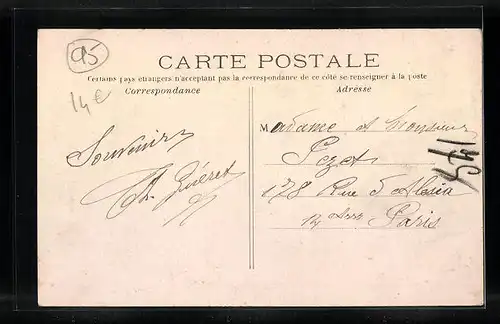 95
CARTE POSTALE
Certains pays étrangers n'acceptant pas la correspondance de ce côté se renseigner à la poste
Correspondance
Adresse
14€
Souvenirs
Madame et Monsieur
178 Rue d'Alésia
Paris